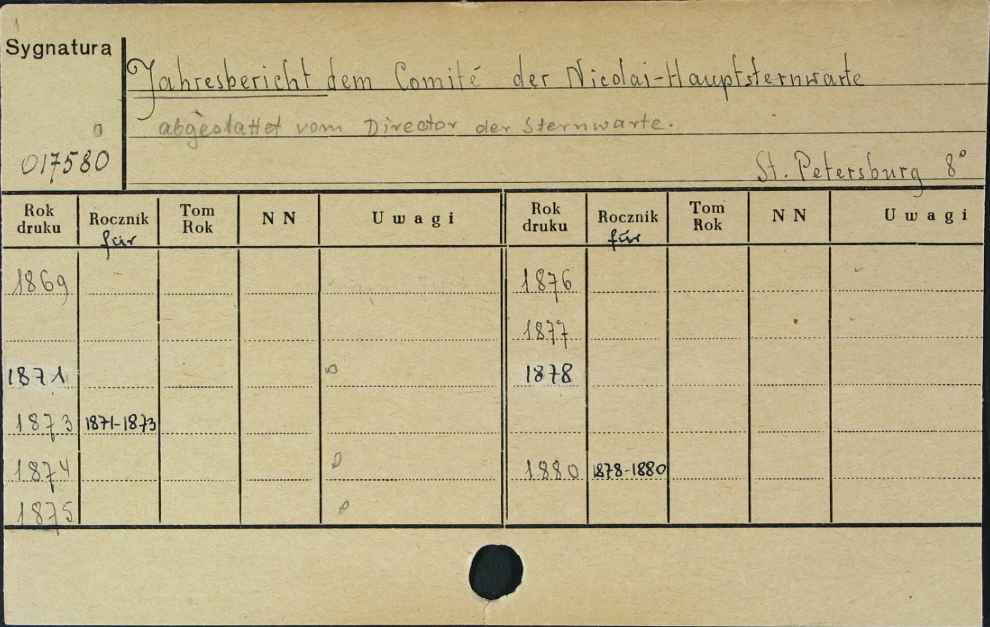 Sygnatura
Jahresbericht dem Comité der Nicolai-Hauptsternwarte
abgestattet vom Director der Sternwarte.
017580
St. Petersburg 8°
Rok druku Rocznik für Tom Rok NN Uwagi Rok druku Rocznik für Tom Rok NN Uwagi
1869 1876
1877
1871 1878
1873 1871-1873
1874 1880 1878-1880
1875